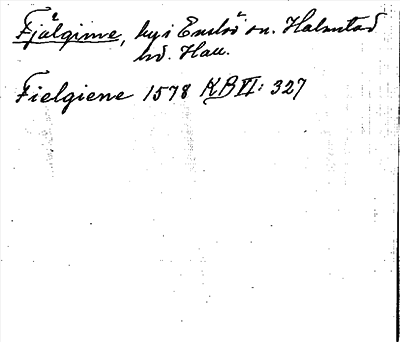 Fjälginne, by i Enslöv sn. Halmstad
hd. Hall.
Fielgiene 1578 KB VI: 327